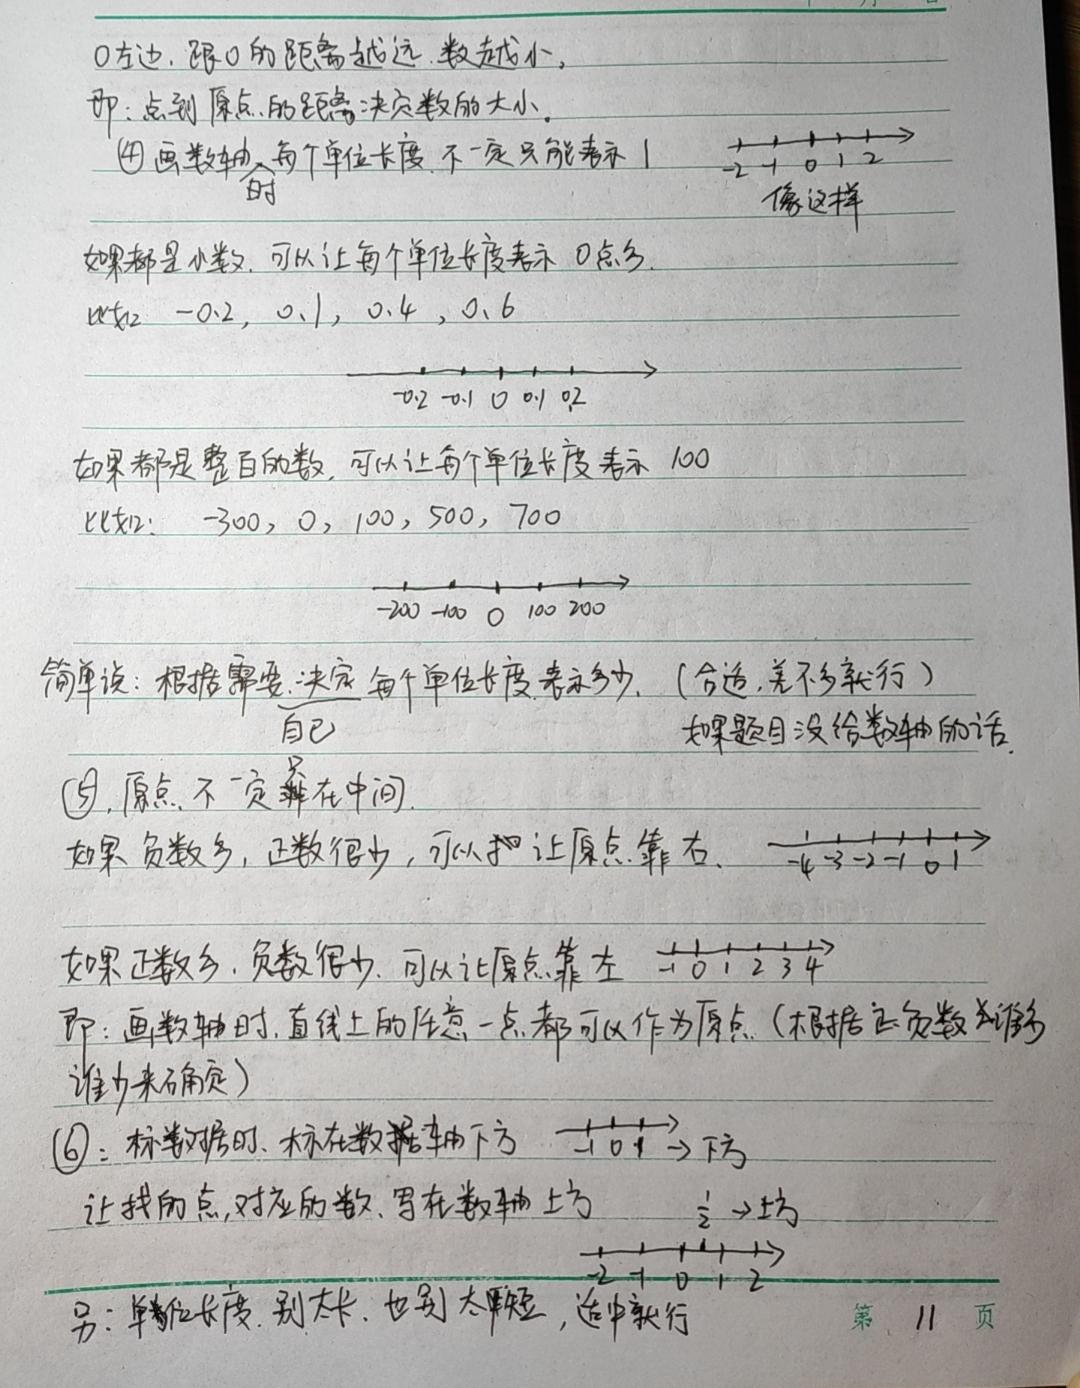 0左边,跟0的距离越远,数越小,
即:点到原点的距离决定数的大小。
④画数轴时,每个单位长度,不一定只能表示1
-2 -1 0 1 2
像这样
如果都是小数,可以让每个单位长度表示0点多.
比如 -0.2, 0.1, 0.4, 0.6
-0.2 -0.1 0 0.1 0.2
如果都是整百的数,可以让每个单位长度表示100
比如: -300, 0, 100, 500, 700
-200 -100 0 100 200
简单说:根据需要,决定每个单位长度表示多少,(合适,差不多就行)
自己
如果题目没给数轴的话.
⑤,原点,不一定只在中间.
如果负数多,正数很少,可以让原点靠右.
-4 -3 -2 -1 0 1
如果正数多,负数很少,可以让原点靠左
-1 0 1 2 3 4
即:画数轴时,直线上的任意一点都可以作为原点(根据正负数谁多
谁少来确定)
⑥:标数据时、标在数轴下方
-1 0 1 →下方
让找的点,对应的数、写在数轴上方
1/2 →上方
-2 -1 0 1 2
另:单位长度,别太长、也别太短,适中就行
第 11 页